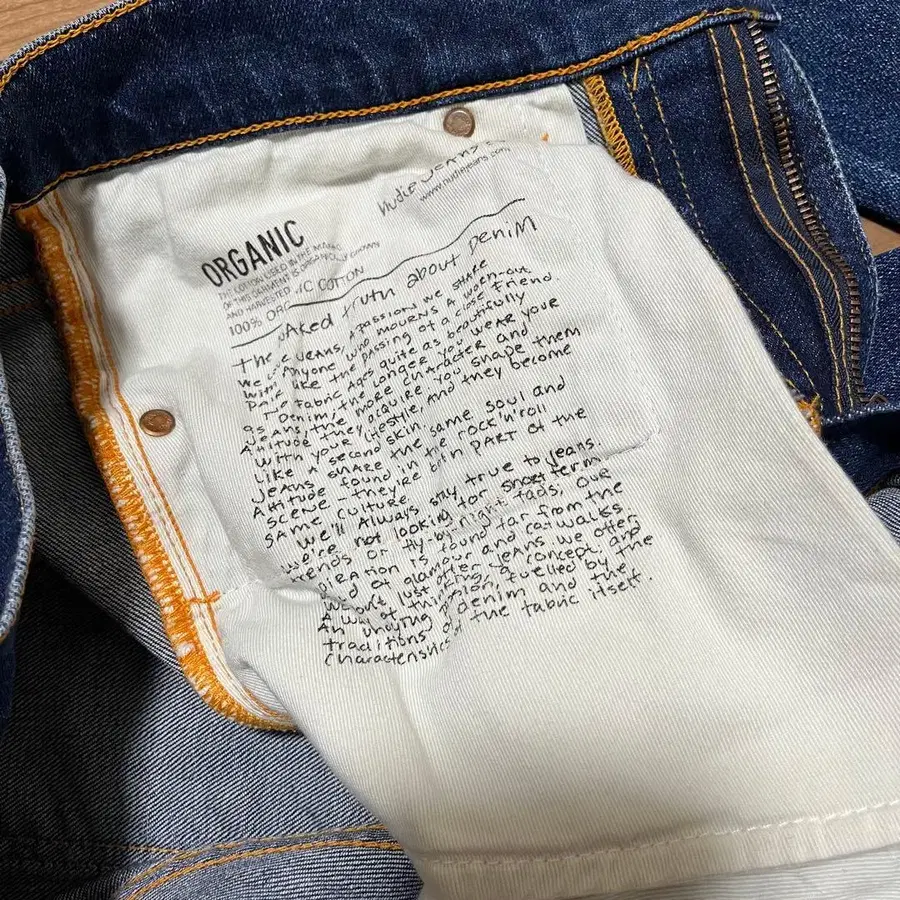 nudie Jeans
www.nudiejeans.com
ORGANIC
THE COTTON USED IN THE
OF THIS GARMENT IS ORGANICALLY GROWN
AND HARVESTED
100% ORGANIC COTTON
the naked truth about Denim
We Jeans, A passion we share
with Anyone who mourns A worn-out
pair like the passing of a close friend.
No fabric ages quite as beautifully
as Denim, the longer you wear your
Jeans, the more character and
Attitude they acquire. You shape them
with your lifestle, And they become
like A second skin.
Jeans share the same soul and
Attitude found in the rock'n'roll
scene – they're both part of the
same culture.
We'll Always stay true to jeans.
We're not looking for short term
trends or fly-by night fads. Our
inspiration is found far from the
of glamour and catwalks.
We don't just offer jeans we offer
A way of thinking, A concept; and
An undying passion, fuelled by the
traditions of denim and the
characteristics of the fabric itself.